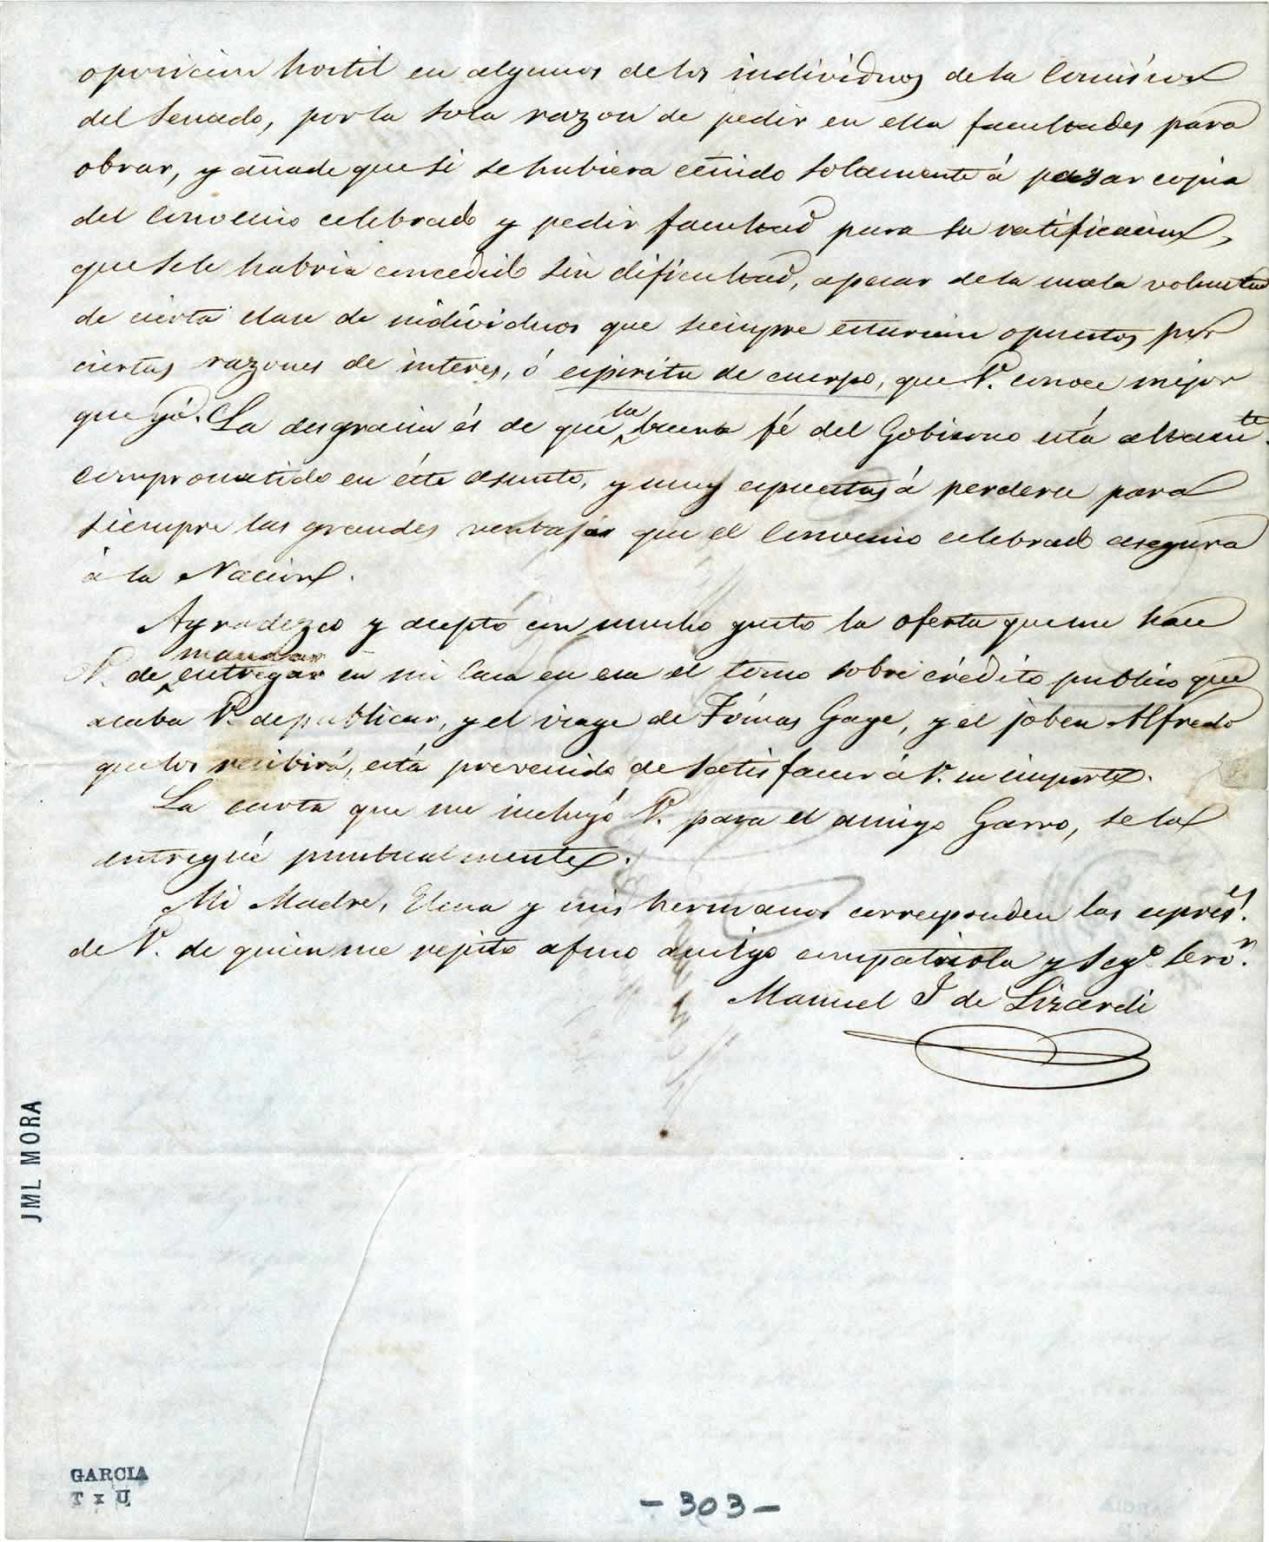 oposicion hostil en algunos de los individuos de la Comision
del Senado, por la sola razon de pedir en ella facultades para
obrar, y añade que si se hubiera ceñido solamente á pasar copia
del Convenio celebrado y pedir facultad para su ratificacion,
que se le habria concedido sin dificultad, apesar de la mala voluntad
de cierta clase de individuos que siempre estarian opuestos por
ciertas razones de interes, ó espiritu de cuerpo, que V. conoce mejor
que yó. La desgracia és de que la buena fé del Gobierno está altamte.
comprometido en éste asunto, y muy espuestas á perderse para
siempre las grandes ventajas que el Convenio celebrado asegura
á la Nacion.
Agradezco y acepto con mucho gusto la oferta que me hace
V. de mandar entregar en mi Casa en esa el tomo sobre crédito publico que
acaba V. de publicar, y el viage de Tómas Gage, y el joben Alfredo
que los recibirá, está prevenido de satisfacer á V. su importe.
La carta que me incluyó V. para el amigo Garro, se la
entregué puntualmente.
Mi Madre, Elena y mis hermanos corresponden las espreses.
de V. de quien me repito afmo amigo compatriota y Sego. Servr.
Manuel J de Lizardi
JML MORA
GARCIA
- 303 -